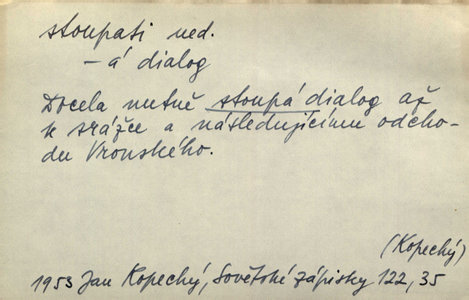 stoupati ned.
– á dialog
Docela nutně stoupá dialog až
k srážce a následujícímu odcho-
du Vronského.
(Kopecký)
1953 Jan Kopecký, Sovětské zápisky 122, 35